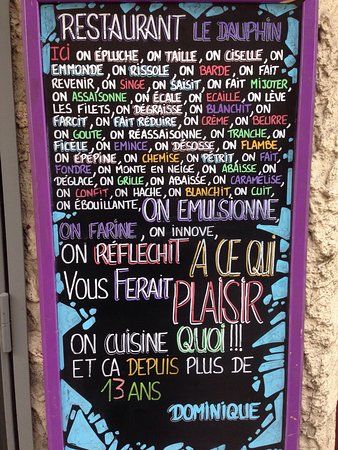 RESTAURANT LE DAUPHIN
ICI ON ÉPLUCHE, ON TAILLE, ON CISELLE, ON
EMMONDE, ON RISSOLE, ON BARDE, ON FAIT
REVENIR, ON SINGE, ON SAISIT, ON FAIT MIJOTER,
ON ASSAISONNE, ON ÉCALE, ON ECAILLE, ON LÈVE
LES FILETS, ON DÉGRAISSE, ON BLANCHIT, ON
FARCIT, ON FAIT RÉDUIRE, ON CRÈME, ON BEURRE,
ON GOUTE, ON RÉASSAISONNE, ON TRANCHE, ON
FICELE, ON EMINCE, ON DÉSOSSE, ON FLAMBE,
ON ÉPÉPINE, ON CHEMISE, ON PÉTRIT, ON FAIT
FONDRE, ON MONTE EN NEIGE, ON ABAISSE, ON
DÉGLACE, ON GRILLE, ON ABAISSE, ON CARAMÉLISE,
ON CONFIT, ON HACHE, ON BLANCHIT, ON CUIT,
ON ÉBOUILLANTE, ON EMULSIONNE,
ON FARINE, ON INNOVE,
ON RÉFLÉCHIT A CE QUI
VOUS FERAIT PLAISIR
ON CUISINE QUOI !!!
ET CA DEPUIS PLUS DE
13 ANS
DOMINIQUE